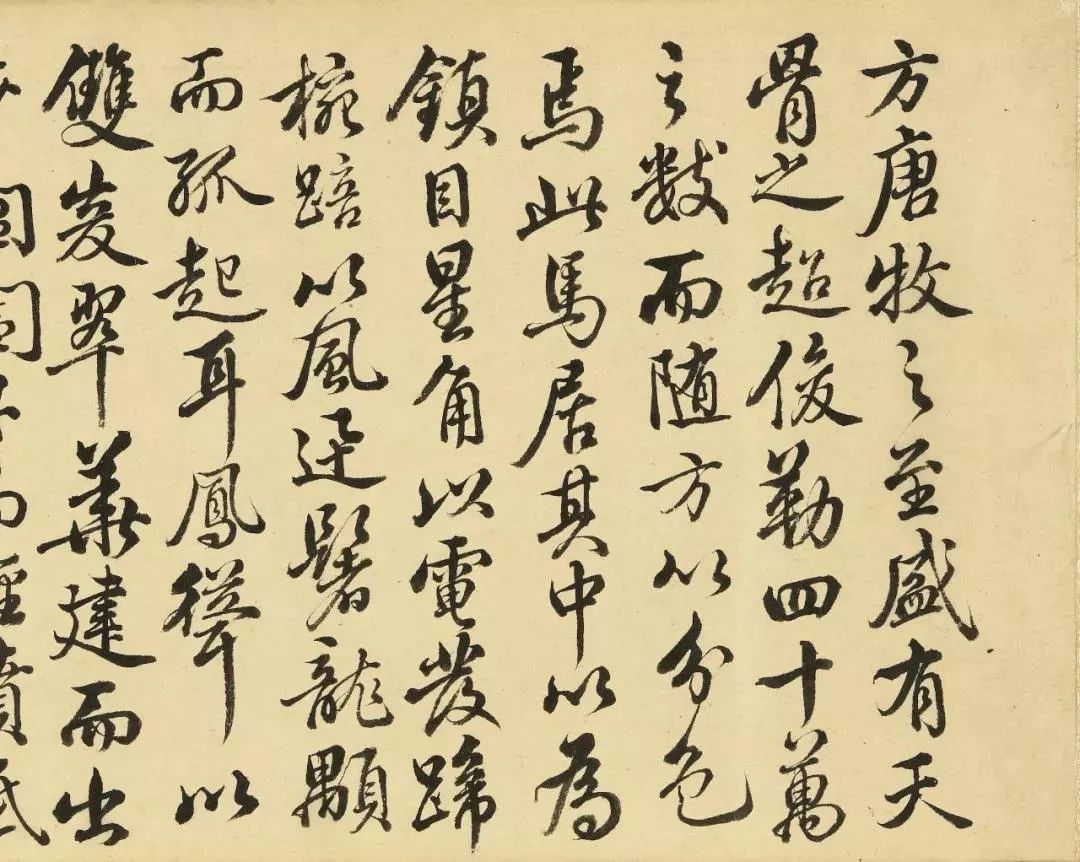 方唐牧之至盛有天
骨之超俊勒四十萬
之數而随方以分色
焉此馬居其中以為
鎮目星角以電發蹄
椀踣以風迅鬐龍顒
而孤起耳鳳聳以
雙峻翠華建而出
閶闔